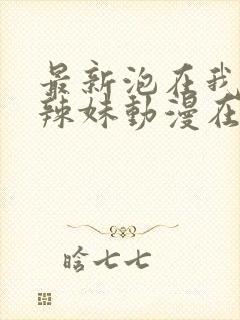 最新泡在我
辣妹動漫在
晗七七